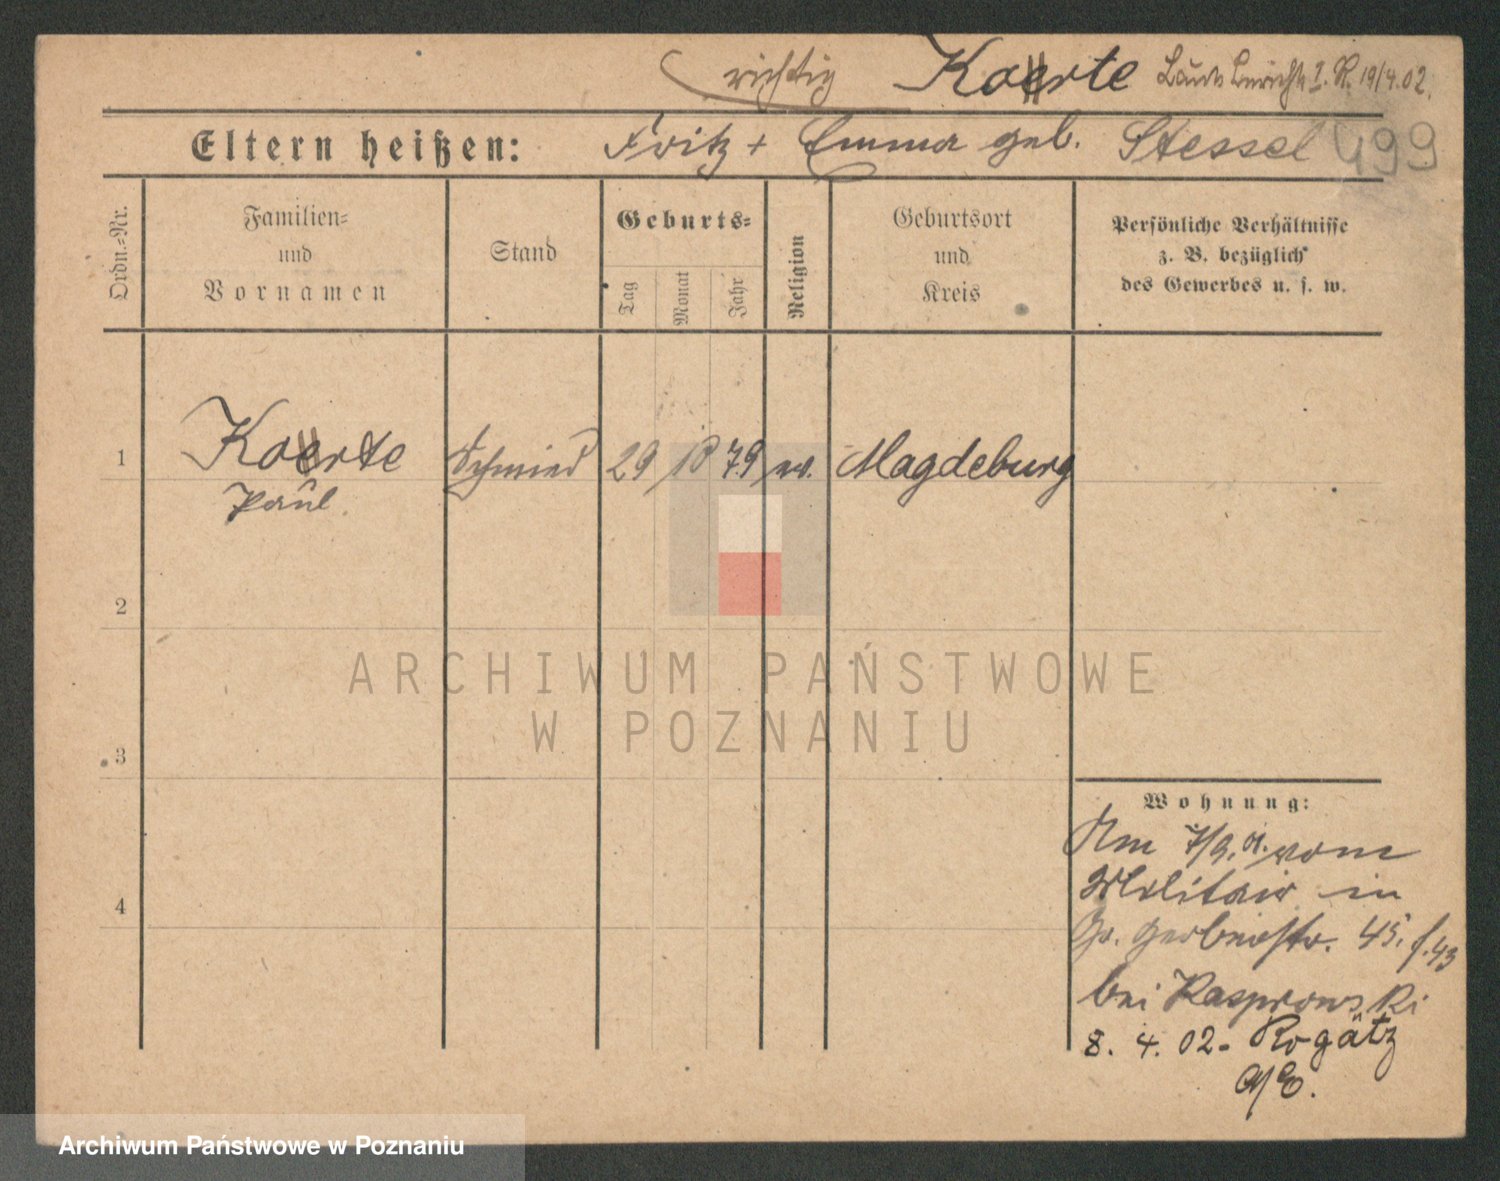 richtig Koerte Laut Bericht I. R. 19/4.02.
Eltern heißen: Fritz + Emma geb. Stessel 499
Ordn.=Nr.
Familien=
und
Vornamen
Stand
Geburts=
Tag
Monat
Jahr
Religion
Geburtsort
und
Kreis
Persönliche Verhältnisse
z. B. bezüglich
des Gewerbes u. s. w.
1 Koerte Schmied 29 10 79 ev. Magdeburg
Paul
2
ARCHIWUM PAŃSTWOWE
W POZNANIU
3
Wohnung:
Am 7/9. 01. vom
Militair in
4
Gr. Gerberstr. 45. f. 43
bei Kasprowski
8. 4. 02- Rogätz
a/E.
Archiwum Państwowe w Poznaniu